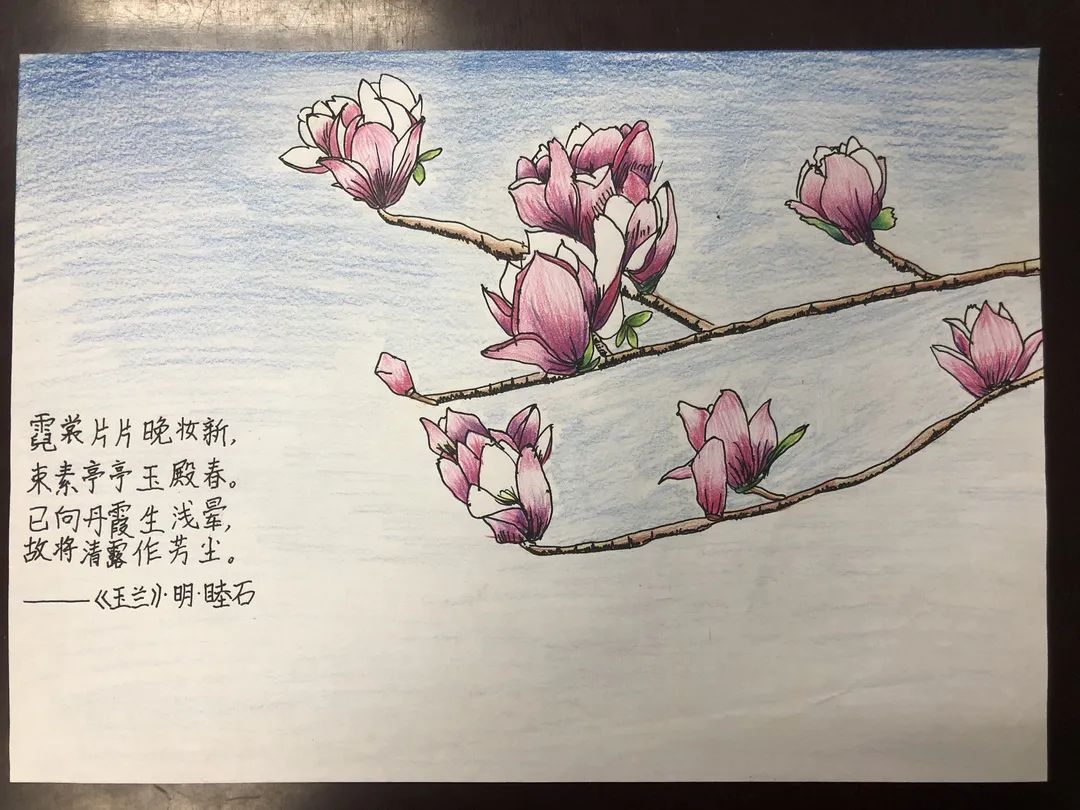 霓裳片片晚妆新，
束素亭亭玉殿春。
已向丹霞生浅晕，
故将清露作芳尘。
——《玉兰》·明·睦石